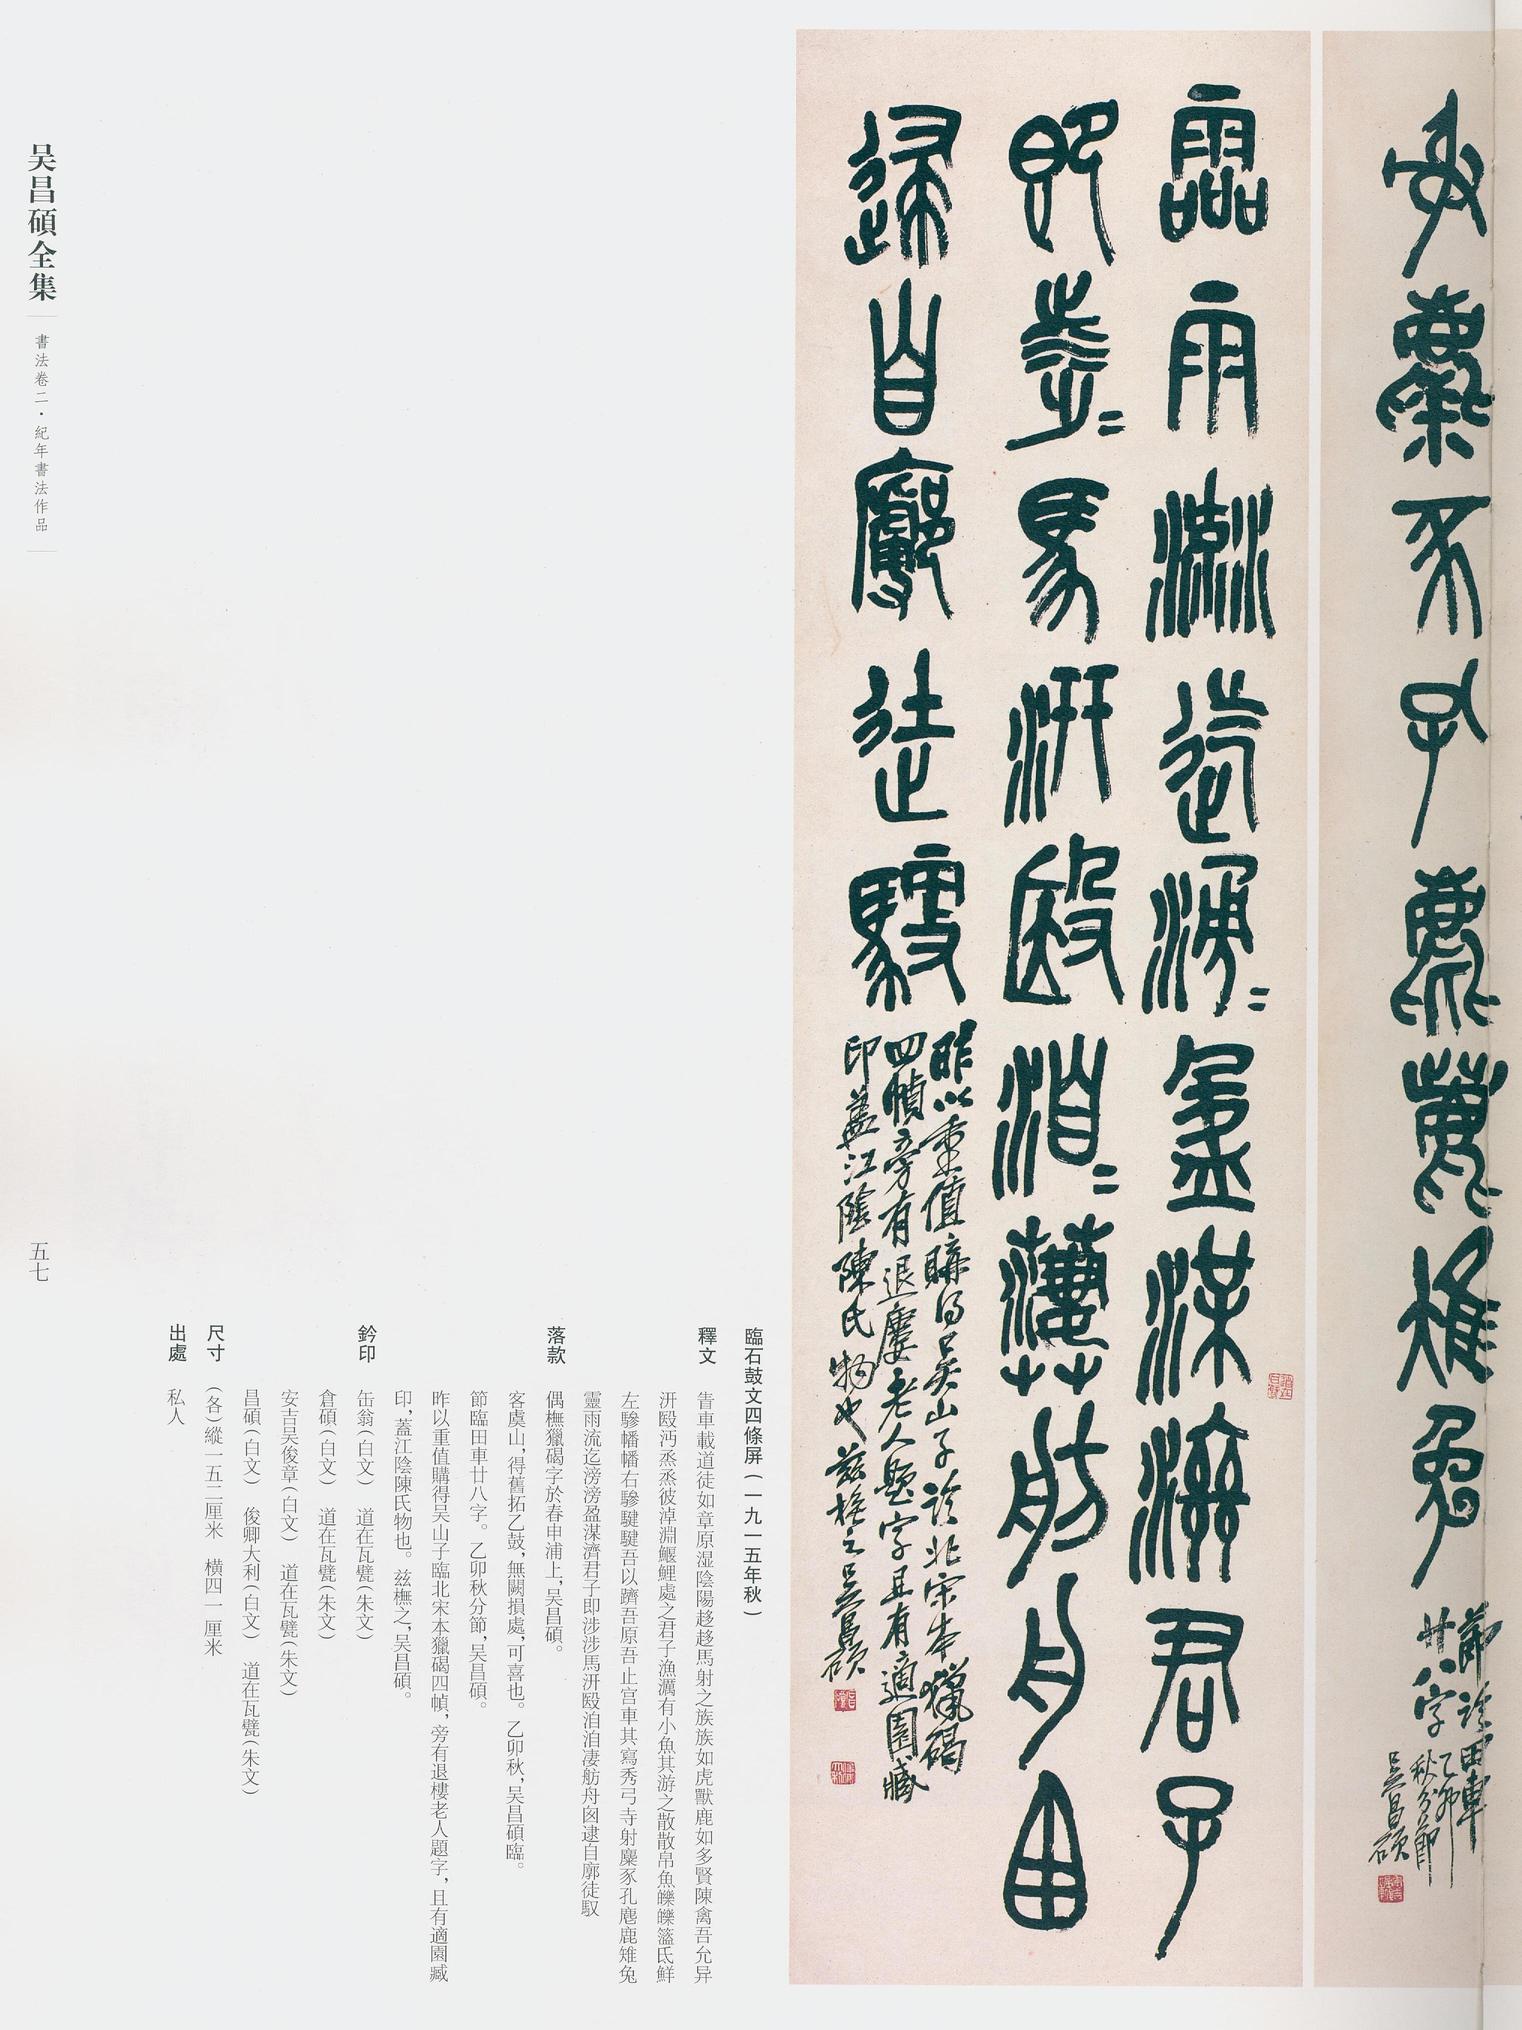 孔麀鹿雉兔
節臨田車
廿八字
乙卯
秋分節
吴昌碩
靈雨流迄滂=盈渫濟君子
即涉=馬汧殹洎=淒舫舟囪
逮自廓徒馭
昨以重值購得吴山子臨北宋本獵碣
四幀旁有退廔老人題字且有適園臧
印蓋江陰陳氏物也兹橅之吴昌碩
臨石鼓文四條屏(一九一五年秋)
釋文
眚車載道徒如章原湿陰陽趍趍馬射之族族如虎獸鹿如多賢陳禽吾允异
汧殹沔烝烝彼淖淵鰋鯉處之君子漁澫有小魚其游之散散帛魚皪皪簜氐鮮
左驂幡幡右驂騝騝吾以隮吾原吾止宫車其寫秀弓寺射麋豕孔麀鹿雉兔
靈雨流迄滂滂盈渫濟君子即涉涉馬汧殹洎洎凄舫舟囪逮自廓徒馭
落款
偶橅獵碣字於春申浦上,吴昌碩。
客虞山,得舊拓乙鼓,無闕損處,可喜也。乙卯秋,吴昌碩臨。
節臨田車廿八字。乙卯秋分節,吴昌碩。
昨以重值購得吴山子臨北宋本獵碣四幀,旁有退樓老人題字,且有適園臧
印,蓋江陰陳氏物也。兹橅之,吴昌碩。
鈐印
缶翁(白文) 道在瓦甓(朱文)
倉碩(白文) 道在瓦甓(朱文)
安吉吴俊章(白文) 道在瓦甓(朱文)
昌碩(白文) 俊卿大利(白文) 道在瓦甓(朱文)
尺寸
(各)縱一五二厘米 橫四一厘米
出處
私人
吴昌碩全集
書法卷二·紀年書法作品
五七